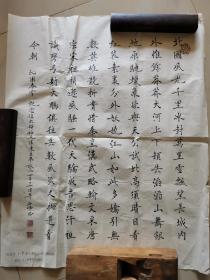 北國風光千里冰封萬里雪飄望長城內
外惟餘莽莽大河上下頓失滔滔山舞銀
蛇原馳蠟象欲與天公試比高須晴日看
紅裝素裹分外妖嬈江山如此多嬌引無
數英雄競折腰惜秦皇漢武略輸文采唐
宗宋祖稍遜風騷一代天驕成吉思汗祇
識彎弓射大鵰俱往矣數風流人物還看
今朝